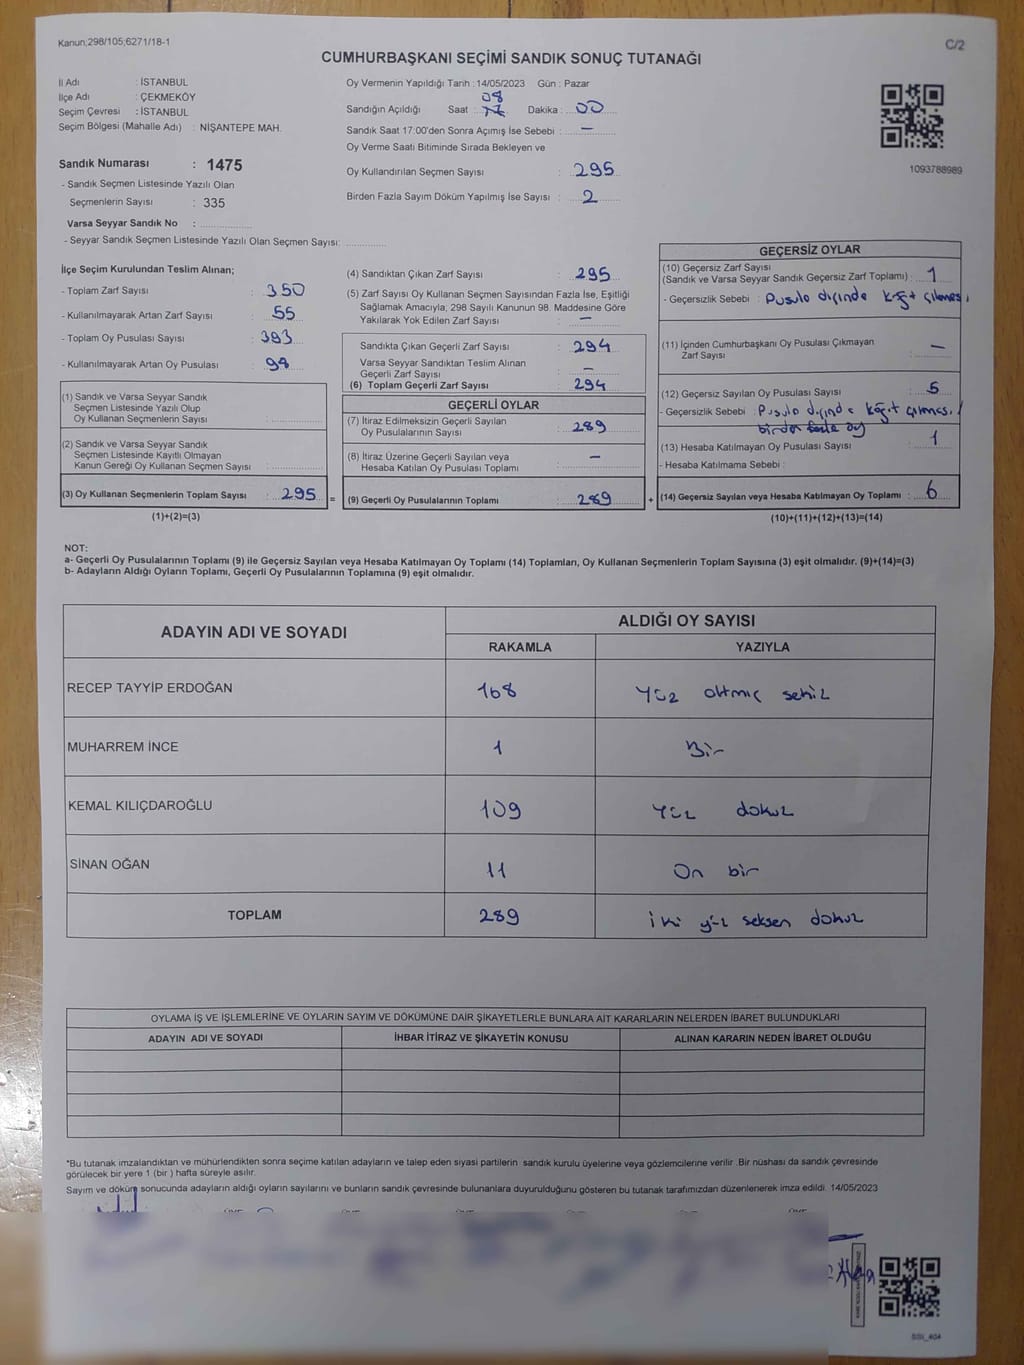 Kanun;298/105;6271/18-1
C/2
CUMHURBAŞKANI SEÇİMİ SANDIK SONUÇ TUTANAĞI
İl Adı : İSTANBUL
İlçe Adı : ÇEKMEKÖY
Seçim Çevresi : İSTANBUL
Seçim Bölgesi (Mahalle Adı) : NİŞANTEPE MAH.
Sandık Numarası : 1475
- Sandık Seçmen Listesinde Yazılı Olan
Seçmenlerin Sayısı : 335
Varsa Seyyar Sandık No :
- Seyyar Sandık Seçmen Listesinde Yazılı Olan Seçmen Sayısı:
Oy Vermenin Yapıldığı Tarih : 14/05/2023 Gün : Pazar
Sandığın Açıldığı Saat : 08 Dakika : 00
Sandık Saat 17:00'den Sonra Açımış İse Sebebi : —
Oy Verme Saati Bitiminde Sırada Bekleyen ve
Oy Kullandırılan Seçmen Sayısı : 295
Birden Fazla Sayım Döküm Yapılmış İse Sayısı : 2
1093788989
İlçe Seçim Kurulundan Teslim Alınan;
- Toplam Zarf Sayısı : 350
- Kullanılmayarak Artan Zarf Sayısı : 55
- Toplam Oy Pusulası Sayısı : 393
- Kullanılmayarak Artan Oy Pusulası : 98
(1) Sandık ve Varsa Seyyar Sandık
Seçmen Listesinde Yazılı Olup
Oy Kullanan Seçmenlerin Sayısı :
(2) Sandık ve Varsa Seyyar Sandık
Seçmen Listesinde Kayıtlı Olmayan
Kanun Gereği Oy Kullanan Seçmen Sayısı :
(3) Oy Kullanan Seçmenlerin Toplam Sayısı : 295 =
(1)+(2)=(3)
(4) Sandıktan Çıkan Zarf Sayısı : 295
(5) Zarf Sayısı Oy Kullanan Seçmen Sayısından Fazla İse, Eşitliği
Sağlamak Amacıyla, 298 Sayılı Kanunun 98. Maddesine Göre
Yakılarak Yok Edilen Zarf Sayısı : —
Sandıkta Çıkan Geçerli Zarf Sayısı : 294
Varsa Seyyar Sandıktan Teslim Alınan
Geçerli Zarf Sayısı : —
(6) Toplam Geçerli Zarf Sayısı : 294
GEÇERLİ OYLAR
(7) İtiraz Edilmeksizin Geçerli Sayılan
Oy Pusulalarının Sayısı : 289
(8) İtiraz Üzerine Geçerli Sayılan veya
Hesaba Katılan Oy Pusulası Toplamı : —
(9) Geçerli Oy Pusulalarının Toplamı : 289 +
GEÇERSİZ OYLAR
(10) Geçersiz Zarf Sayısı
(Sandık ve Varsa Seyyar Sandık Geçersiz Zarf Toplamı) : 1
- Geçersizlik Sebebi : Pusula dışında kağıt çıkması
(11) İçinden Cumhurbaşkanı Oy Pusulası Çıkmayan
Zarf Sayısı : —
(12) Geçersiz Sayılan Oy Pusulası Sayısı : 5
- Geçersizlik Sebebi : Pusula dışında kağıt çıkması /
birden fazla oy
(13) Hesaba Katılmayan Oy Pusulası Sayısı : 1
- Hesaba Katılmama Sebebi :
(14) Geçersiz Sayılan veya Hesaba Katılmayan Oy Toplamı : 6
(10)+(11)+(12)+(13)=(14)
NOT:
a- Geçerli Oy Pusulalarının Toplamı (9) ile Geçersiz Sayılan veya Hesaba Katılmayan Oy Toplamı (14) Toplamları, Oy Kullanan Seçmenlerin Toplam Sayısına (3) eşit olmalıdır. (9)+(14)=(3)
b- Adayların Aldığı Oyların Toplamı, Geçerli Oy Pusulalarının Toplamına (9) eşit olmalıdır.
ADAYIN ADI VE SOYADI
ALDIĞI OY SAYISI
RAKAMLA YAZIYLA
RECEP TAYYİP ERDOĞAN 168 Yüz altmış sekiz
MUHARREM İNCE 1 Bir
KEMAL KILIÇDAROĞLU 109 Yüz dokuz
SİNAN OĞAN 11 On bir
TOPLAM 289 iki yüz seksen dokuz
OYLAMA İŞ VE İŞLEMLERİNE VE OYLARIN SAYIM VE DÖKÜMÜNE DAİR ŞİKAYETLERLE BUNLARA AİT KARARLARIN NELERDEN İBARET BULUNDUKLARI
ADAYIN ADI VE SOYADI İHBAR İTİRAZ VE ŞİKAYETİN KONUSU ALINAN KARARIN NEDEN İBARET OLDUĞU
*Bu tutanak imzalandıktan ve mühürlendikten sonra seçime katılan adayların ve talep eden siyasi partilerin sandık kurulu üyelerine veya gözlemcilerine verilir .Bir nüshası da sandık çevresinde
görülecek bir yere 1 (bir ) hafta süreyle asılır.
Sayım ve döküm sonucunda adayların aldığı oyların sayılarını ve bunların sandık çevresinde bulunanlara duyurulduğunu gösteren bu tutanak tarafımızdan düzenlenerek imza edildi. 14/05/2023
SSI_404